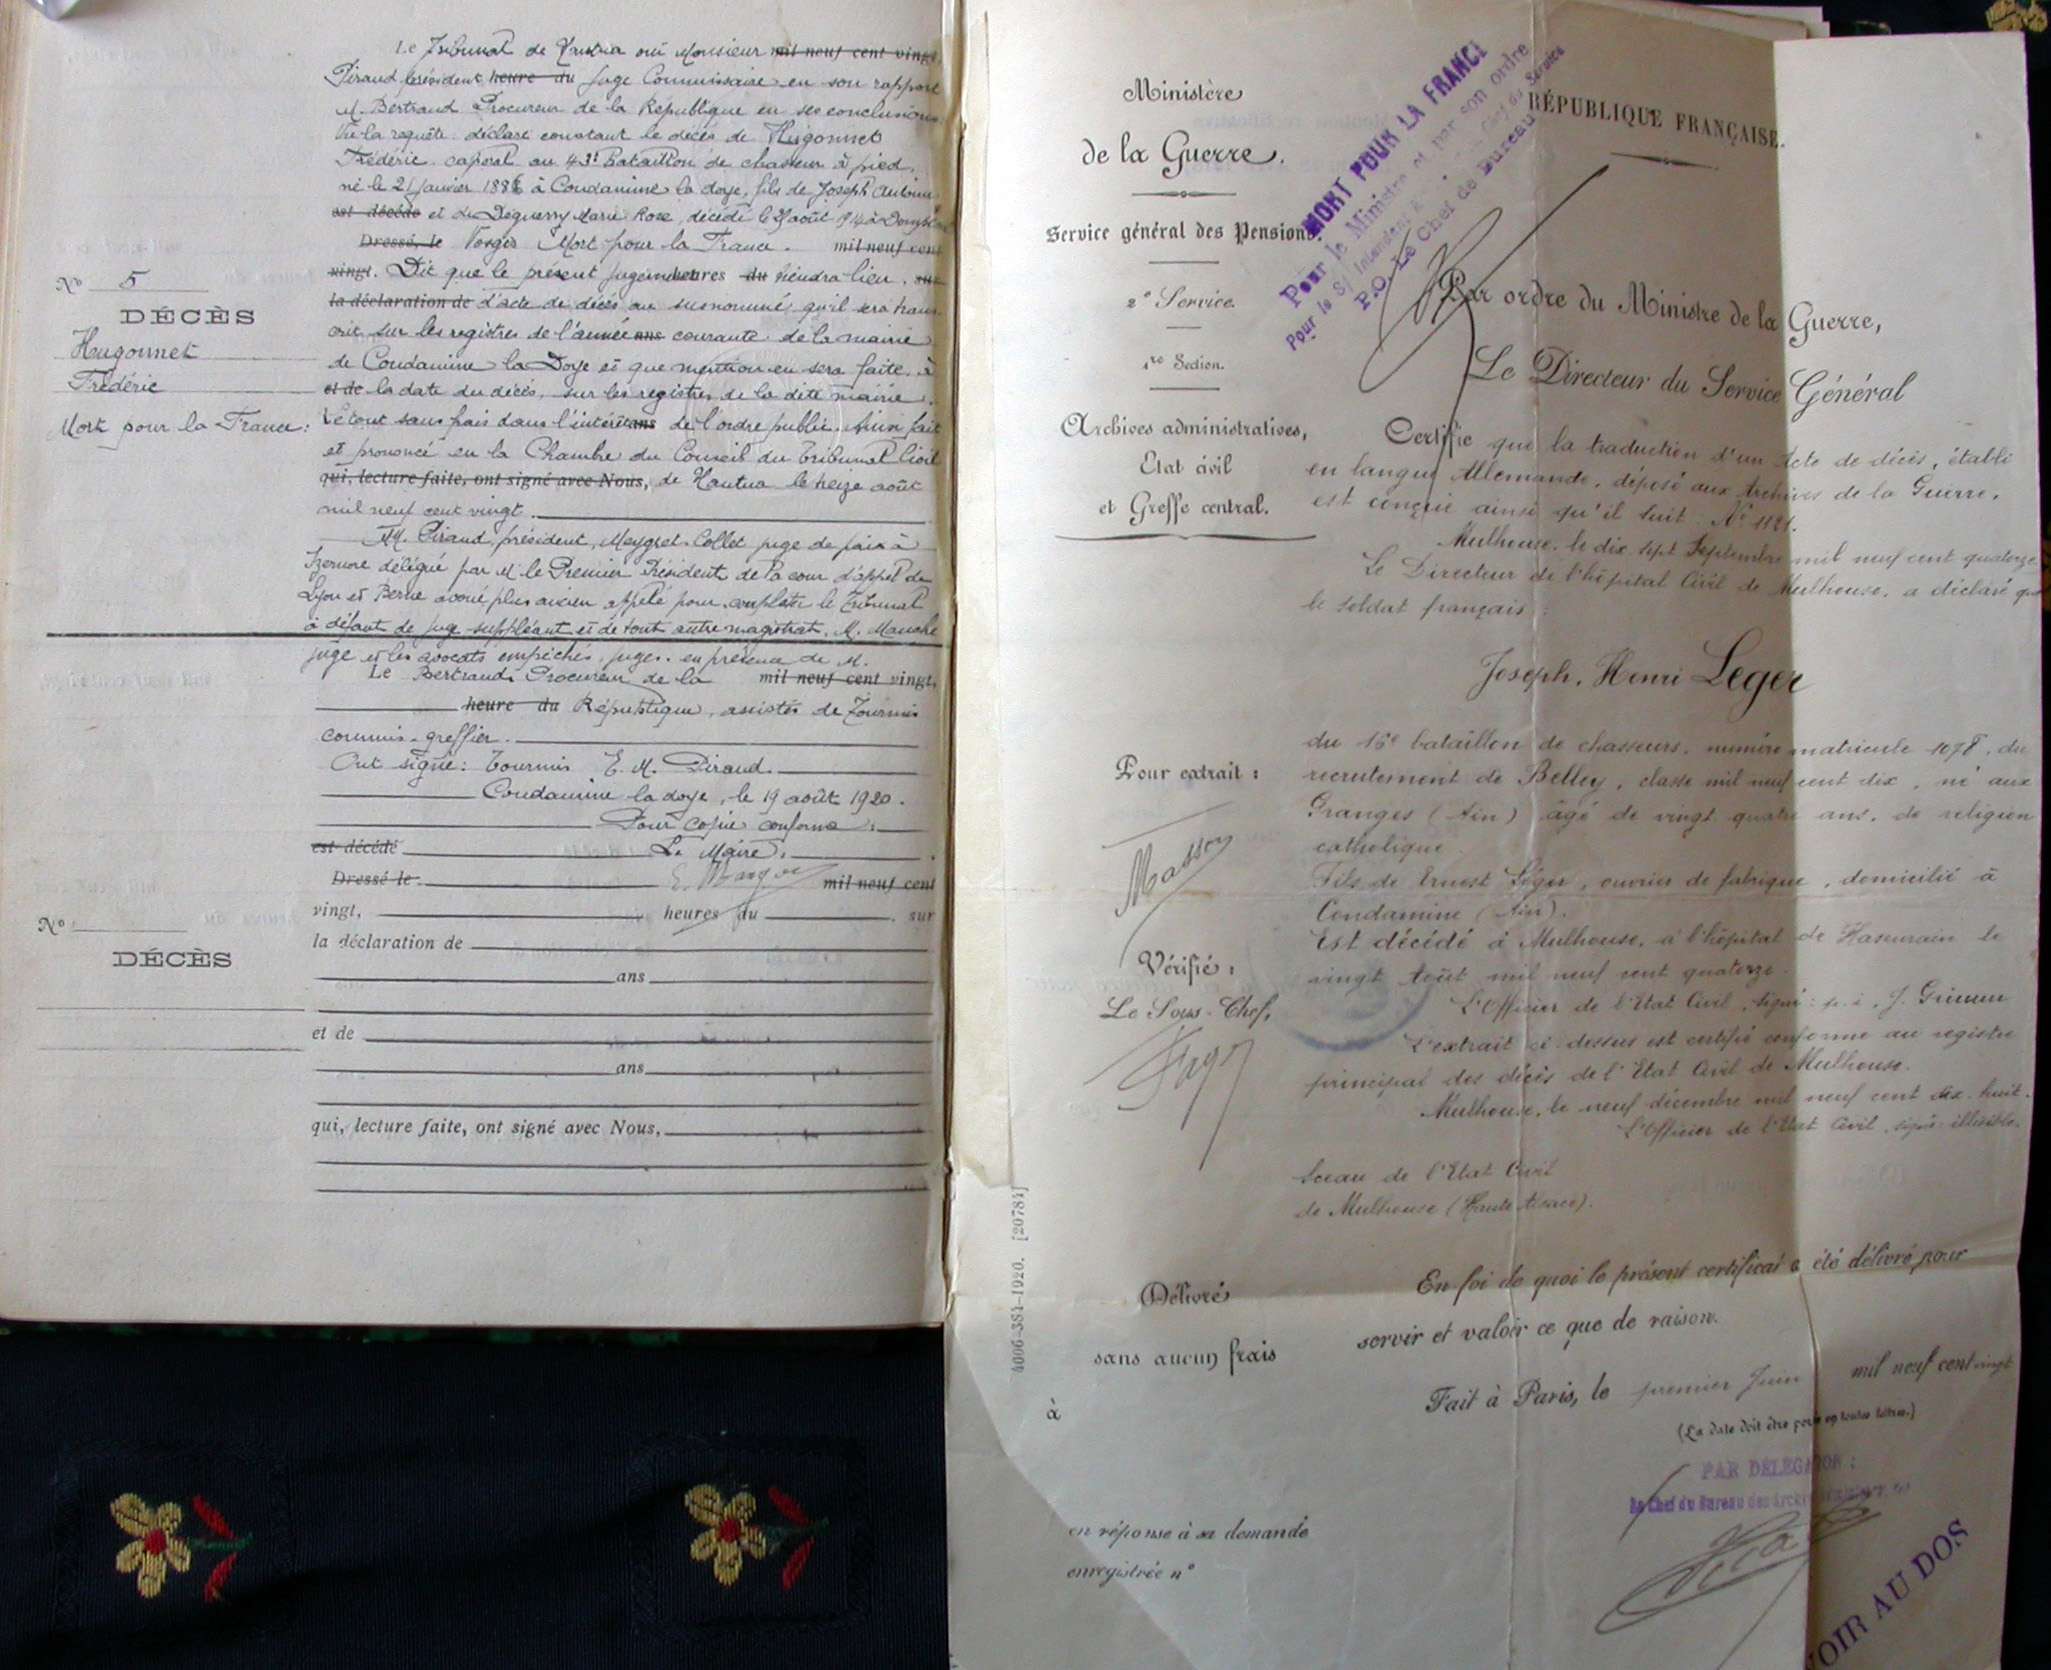 Le Tribunal de Nantua ouï Monsieur mil neuf cent vingt,
Piraud président heure du Juge Commissaire en son rapport
M. Bertrand Procureur de la République en ses conclusions
Vu la requête: déclare constant le décès de Hugonnet
Frédéric caporal au 43e Bataillon de chasseur à pied,
né le 21 Janvier 1886 à Condamine la doye, fils de Joseph Antoine
est décédé et de Deguerry Marie Rose, décédé le août 1914 à
Dressé, le Vosges Mort pour la France. mil neuf cent
vingt. Dit que le présent jugement heures du tiendra lieu. sur
la déclaration de d'acte de décès au susnommé, qu'il sera trans
crit sur les registres de l'année ans courante de la mairie
de Condamine la Doye et que mention en sera faite, à
et de la date du décès, sur les registres de la dite mairie.
Le tout sans frais dans l'intérêt ans de l'ordre public. Ainsi fait
et prononcé en la Chambre du Conseil du Tribunal Civil
qui, lecture faite, ont signé avec Nous, de Nantua le treize août
mil neuf cent vingt.
MM. Piraud, président, Meygret-Collet juge de paix à
Izernore délégué par M. le Premier Président de la cour d'appel de
Lyon et Berne avoué plus ancien appelé pour compléter le Tribunal
à défaut de juge suppléant et de tout autre magistrat, M.
juge et les avocats empêchés, juges. en présence de M.
Le Bertrand, Procureur de la mil neuf cent vingt,
heure du République, assistés de Tournis
commis-greffier.
Ont signé: Tournis E. M. Piraud.
Condamine la doye, le 19 août 1920.
Pour copie conforme:
est décédé Le Maire,
Dressé le mil neuf cent
vingt, heures du , sur
la déclaration de
ans
et de
ans
qui, lecture faite, ont signé avec Nous,
No 5
DÉCÈS
Hugonnet
Frédéric
Mort pour la France:
No
DÉCÈS
Ministère
de la Guerre.
Service général des Pensions.
2e Service.
1re Section.
Archives administratives,
Etat civil
et Greffe central.
Pour extrait:
Masson
Vérifié:
Le Sous-Chef,
Délivré
sans aucun frais
à
en réponse à sa demande
enregistrée n°
4006-384-1920. [20784]
MORT POUR LA FRANCE
Pour le Ministre et par son ordre
Pour le S/ Intendant Chef du Service
P.O. Le Chef de Bureau
RÉPUBLIQUE FRANÇAISE.
Par ordre du Ministre de la Guerre,
Le Directeur du Service Général
Certifie que la traduction d'un Acte de décès, établi
en langue Allemande, déposé aux Archives de la Guerre,
est conçue ainsi qu'il suit: N° 1121.
Mulhouse, le dix sept Septembre mil neuf cent quatorze
Le Directeur de l'hôpital Civil de Mulhouse, a déclaré que
le soldat français:
Joseph, Henri Leger
du 16e bataillon de chasseurs, numéro matricule 1078, du
recrutement de Belley, classe mil neuf cent dix, né aux
Granges (Ain) âgé de vingt quatre ans, de religion
catholique.
Fils de Ernest Léger, ouvrier de fabrique, domicilié à
Condamine (Ain).
Est décédé à Mulhouse, à l'hôpital de Hasenrain le
vingt Août mil neuf cent quatorze.
L'Officier de l'Etat Civil, signé: p. i., J. Grimm
L'extrait ci-dessus est certifié conforme au registre
principal des décès de l'Etat Civil de Mulhouse.
Mulhouse, le neuf décembre mil neuf cent dix-huit.
L'Officier de l'Etat Civil, signé: illisible.
Sceau de l'Etat Civil
de Mulhouse (Haute Alsace).
En foi de quoi le présent certificat a été délivré pour
servir et valoir ce que de raison.
Fait à Paris, le premier Juin mil neuf cent vingt
(La date doit être portée en toutes lettres.)
PAR DÉLÉGATION:
Le Chef du Bureau des Archives
VOIR AU DOS